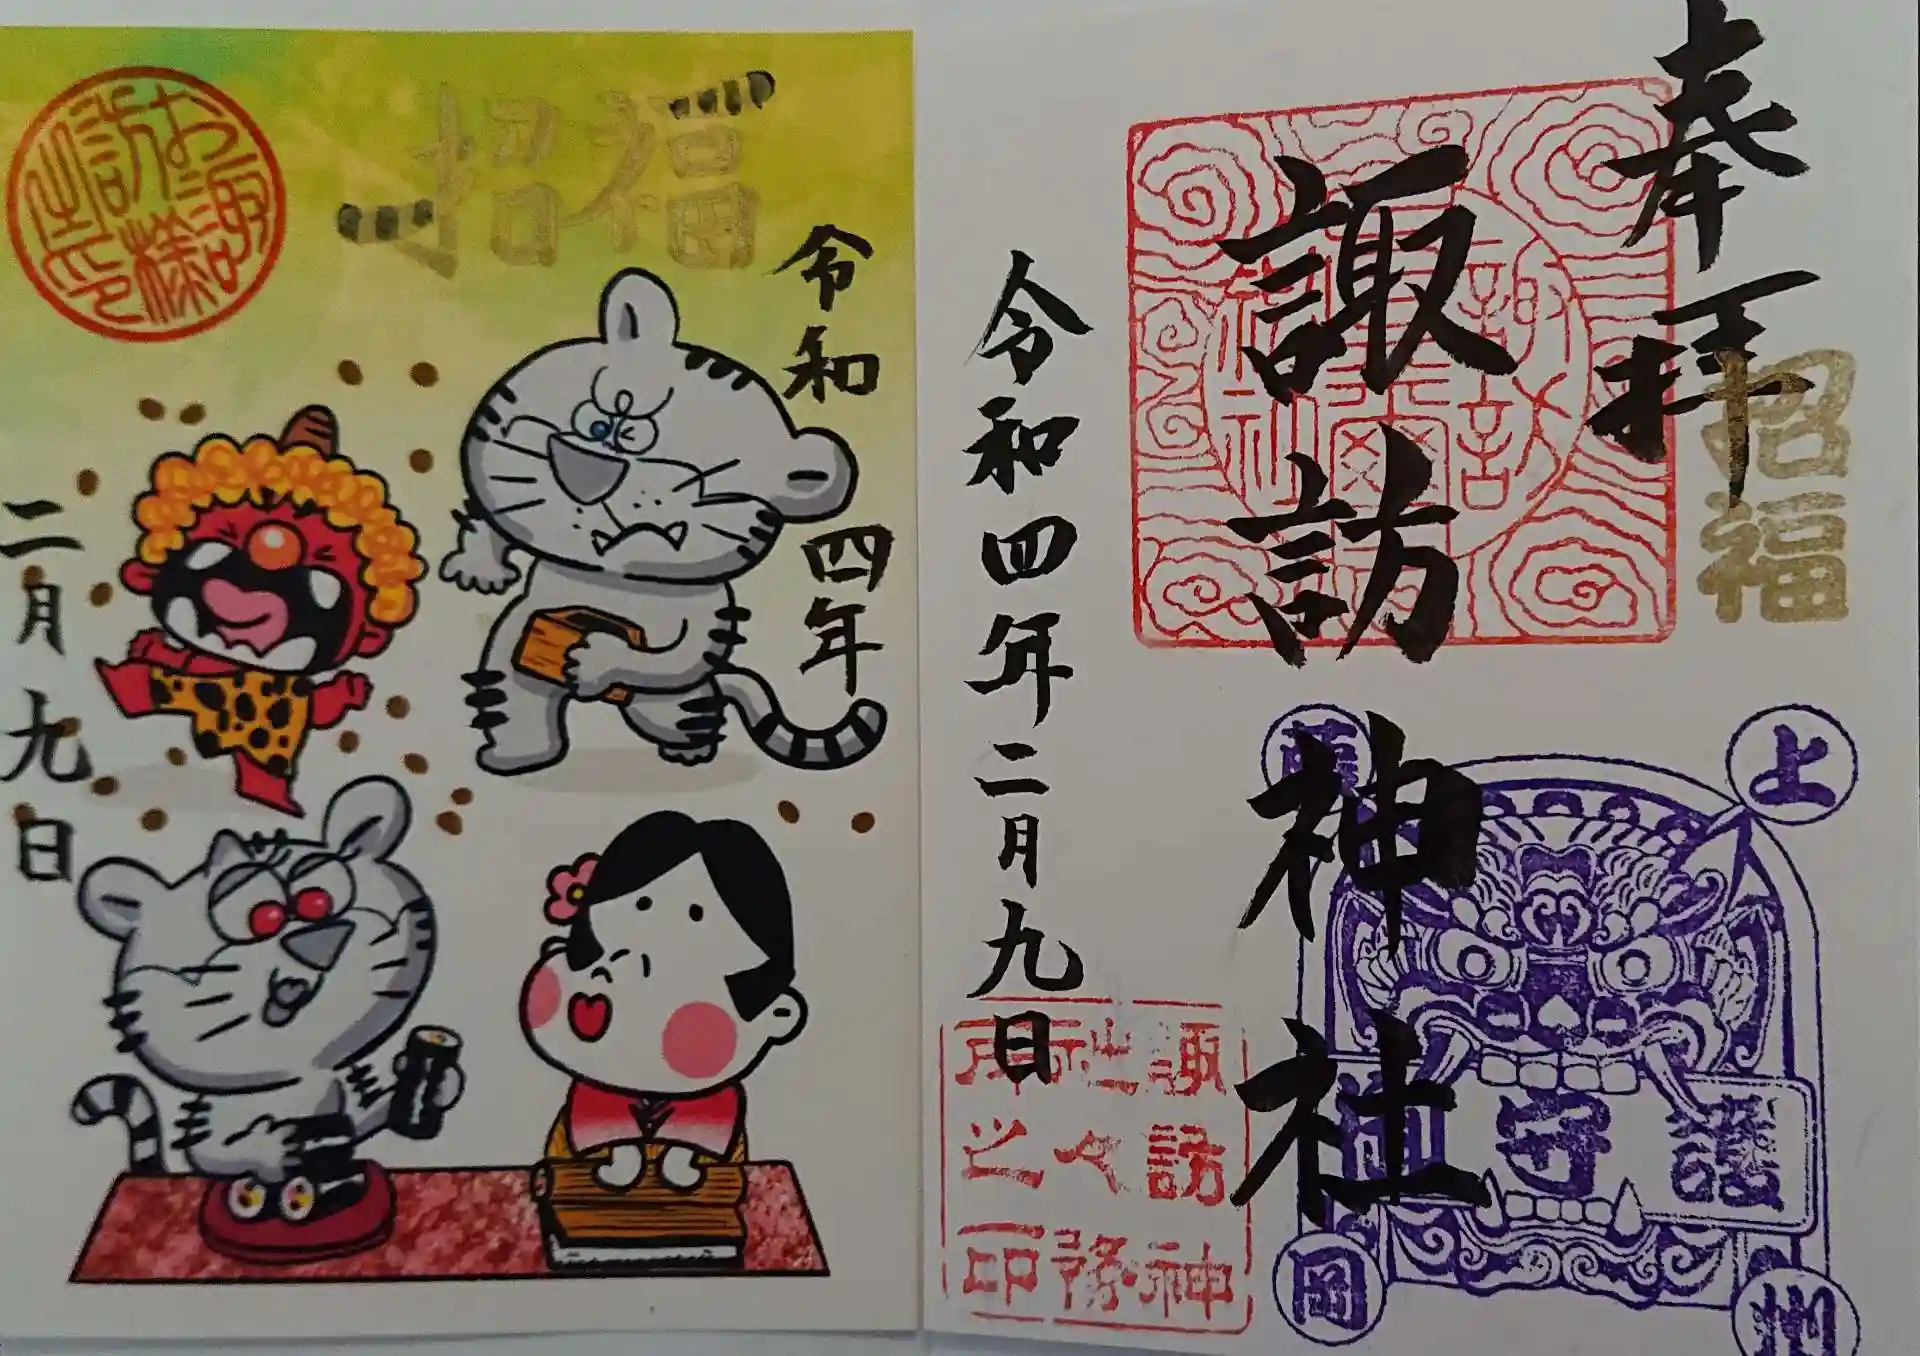 奉拝
招福
諏訪神社
令和四年二月九日
上
州
藤
岡
諏訪神
社々務
之印
招福
令和四年
二月九日
お諏
訪様
之印